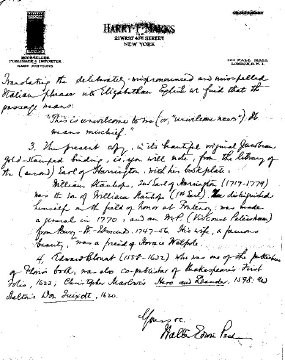 HARRY F. MARKS
31 WEST 47th STREET
NEW YORK
BOOKSELLER
PUBLISHER & IMPORTER
Translating the deliberately mispronounced and mis-spelled
Italian phrases into Elizabethan English we find that the
passage means:
"This is unwelcome to me (or, "unwelcome news"). It
means mischief."
3. The present copy, in its beautiful original Jacobean
gold-stamped binding, is, you will note, from the library of
the Earl of Harrington, with his bookplate:
William Stanhope, 2nd Earl of Harrington (1719-1779)
was the son of William Stanhope (1st Earl). He distinguished
himself on the field of honor at Fontenoy, was made
a general in 1770, and an M.P. (Viscount Petersham)
from Bury St. Edmunds 1747-56. His wife, a famous
beauty, was a friend of Horace Walpole.
4. Edward Blount (1588-1632) who was one of the publishers
of this book, was also co-publisher of Shakespeare's First
Folio, 1623, Christopher Marlowe's Hero and Leander, 1598, and
Shelton's Don Quixote, 1620.
Yours etc.